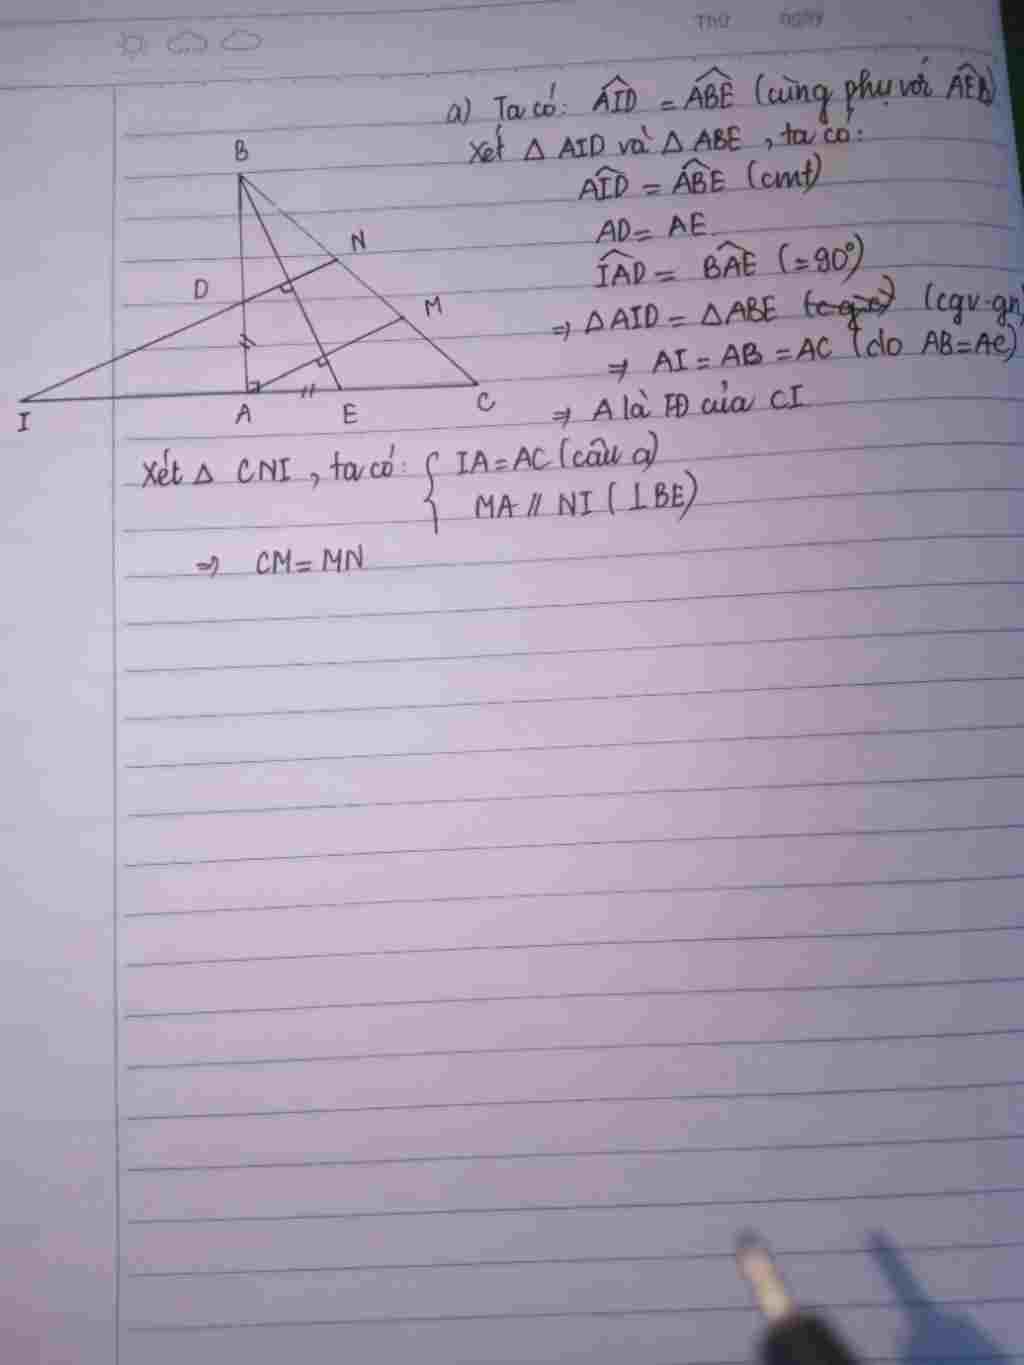 Thứ ngày
a) Ta có: AID = ABE (cùng phụ với AEB)
Xét Δ AID và Δ ABE, ta có:
AID = ABE (cmt)
AD = AE
IAD = BAE (=90°)
⇒ ΔAID = ΔABE (cgv-gn)
⇒ AI = AB = AC (do AB=AC)
⇒ A là TĐ của CI
B
N
D
M
I
A
E
C
Xét Δ CNI, ta có: { IA=AC (câu a)
MA // NI (⊥BE)
⇒ CM = MN